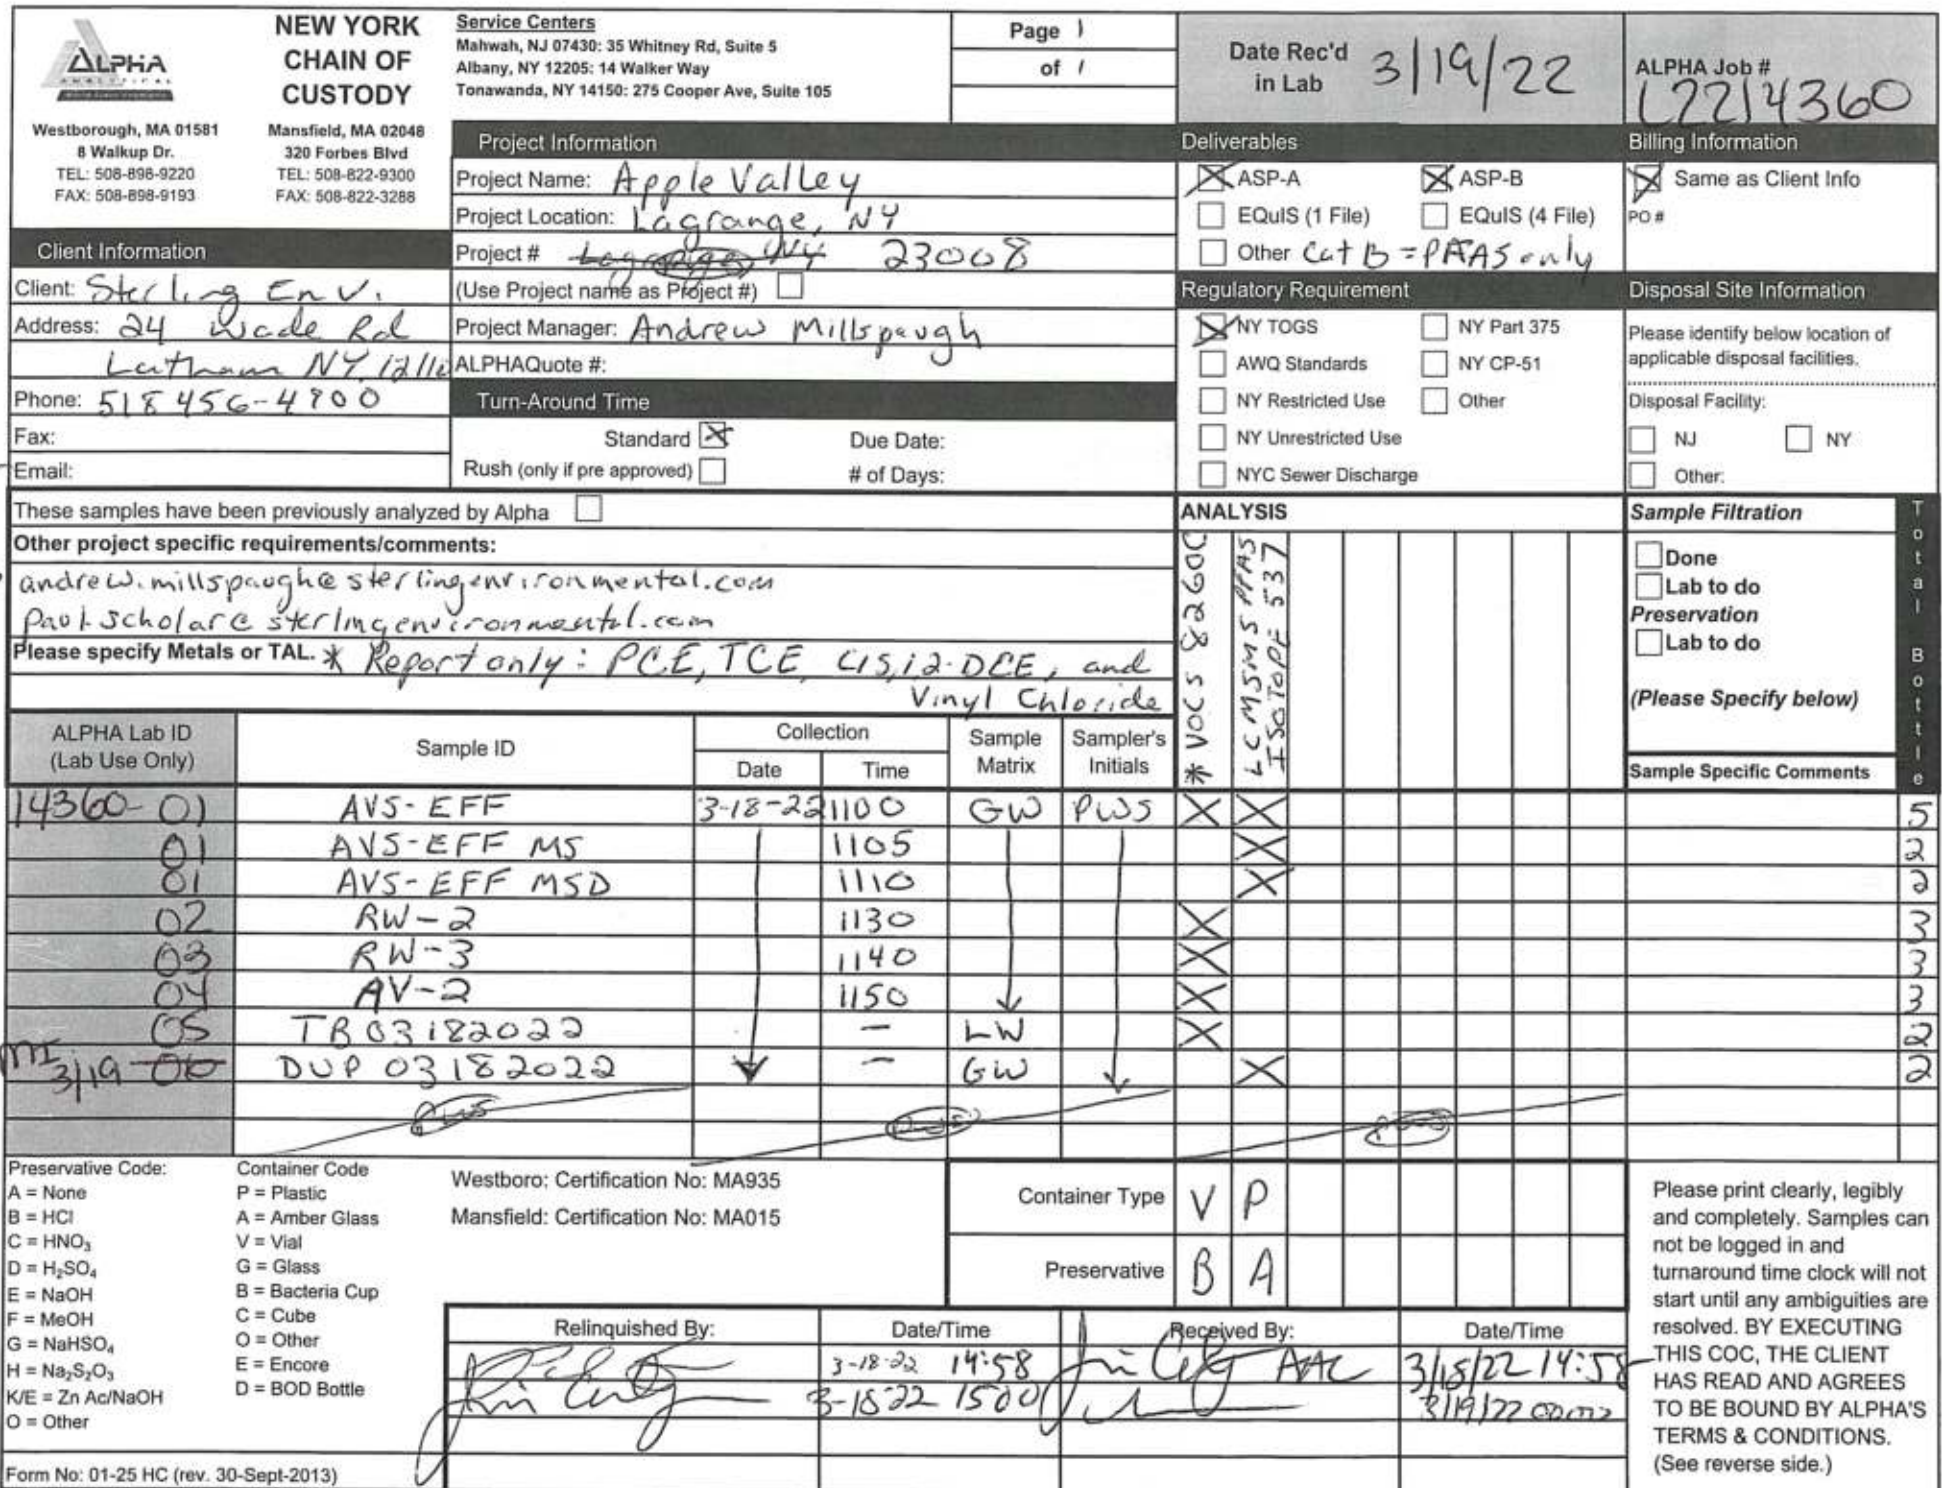 ALPHA
ANALYTICAL
NEW YORK
CHAIN OF
CUSTODY
Westborough, MA 01581
8 Walkup Dr.
TEL: 508-898-9220
FAX: 508-898-9193
Mansfield, MA 02048
320 Forbes Blvd
TEL: 508-822-9300
FAX: 508-822-3288
Service Centers
Mahwah, NJ 07430: 35 Whitney Rd, Suite 5
Albany, NY 12205: 14 Walker Way
Tonawanda, NY 14150: 275 Cooper Ave, Suite 105
Page 1
of 1
Date Rec'd
in Lab 3/19/22
ALPHA Job #
L2214360
Client Information
Client: Sterling Env.
Address: 24 Wade Rd
Latham NY
Phone: 518 456-4900
Fax:
Email:
Project Information
Project Name: Apple Valley
Project Location: Lagrange, NY
Project # Lagrange, NY 23008
(Use Project name as Project #)
Project Manager: Andrew Millspaugh
ALPHAQuote #:
Turn-Around Time
Standard X Due Date:
Rush (only if pre approved) # of Days:
Deliverables
X ASP-A X ASP-B
EQuIS (1 File) EQuIS (4 File)
Other Cat B = PFAS only
Regulatory Requirement
X NY TOGS NY Part 375
AWQ Standards NY CP-51
NY Restricted Use Other
NY Unrestricted Use
NYC Sewer Discharge
Billing Information
X Same as Client Info
PO #
Disposal Site Information
Please identify below location of
applicable disposal facilities.
Disposal Facility:
NJ NY
Other:
These samples have been previously analyzed by Alpha
Other project specific requirements/comments:
andrew.millspaugh@sterlingenvironmental.com
paul.scholar@sterlingenvironmental.com
Please specify Metals or TAL. * Report only: PCE, TCE, Cis,1,2-DCE, and
Vinyl Chloride
ANALYSIS
* VOCS 8260C
LCMSMS PFAS
ISOTOPE 537
Sample Filtration
Done
Lab to do
Preservation
Lab to do
(Please Specify below)
Total Bottle
ALPHA Lab ID
(Lab Use Only)
Sample ID
Collection
Date Time
Sample
Matrix
Sampler's
Initials
Sample Specific Comments
14360-01 AVS-EFF 3-18-22 1100 GW PWS X X 5
01 AVS-EFF MS 1105 X 2
01 AVS-EFF MSD 1110 X 2
02 RW-2 1130 X 3
03 RW-3 1140 X 3
04 AV-2 1150 X 3
05 TB03182022 - LW X 2
MI 3/19 06 DUP 03182022 - GW X 2
PWS PWS PWS
Preservative Code:
A = None
B = HCl
C = HNO₃
D = H₂SO₄
E = NaOH
F = MeOH
G = NaHSO₄
H = Na₂S₂O₃
K/E = Zn Ac/NaOH
O = Other
Container Code
P = Plastic
A = Amber Glass
V = Vial
G = Glass
B = Bacteria Cup
C = Cube
O = Other
E = Encore
D = BOD Bottle
Westboro: Certification No: MA935
Mansfield: Certification No: MA015
Container Type V P
Preservative B A
Relinquished By: Date/Time Received By: Date/Time
3-18-22 14:58 AAC 3/18/22 14:58
3-18-22 1500 3/19/22
Please print clearly, legibly
and completely. Samples can
not be logged in and
turnaround time clock will not
start until any ambiguities are
resolved. BY EXECUTING
THIS COC, THE CLIENT
HAS READ AND AGREES
TO BE BOUND BY ALPHA'S
TERMS & CONDITIONS.
(See reverse side.)
Form No: 01-25 HC (rev. 30-Sept-2013)